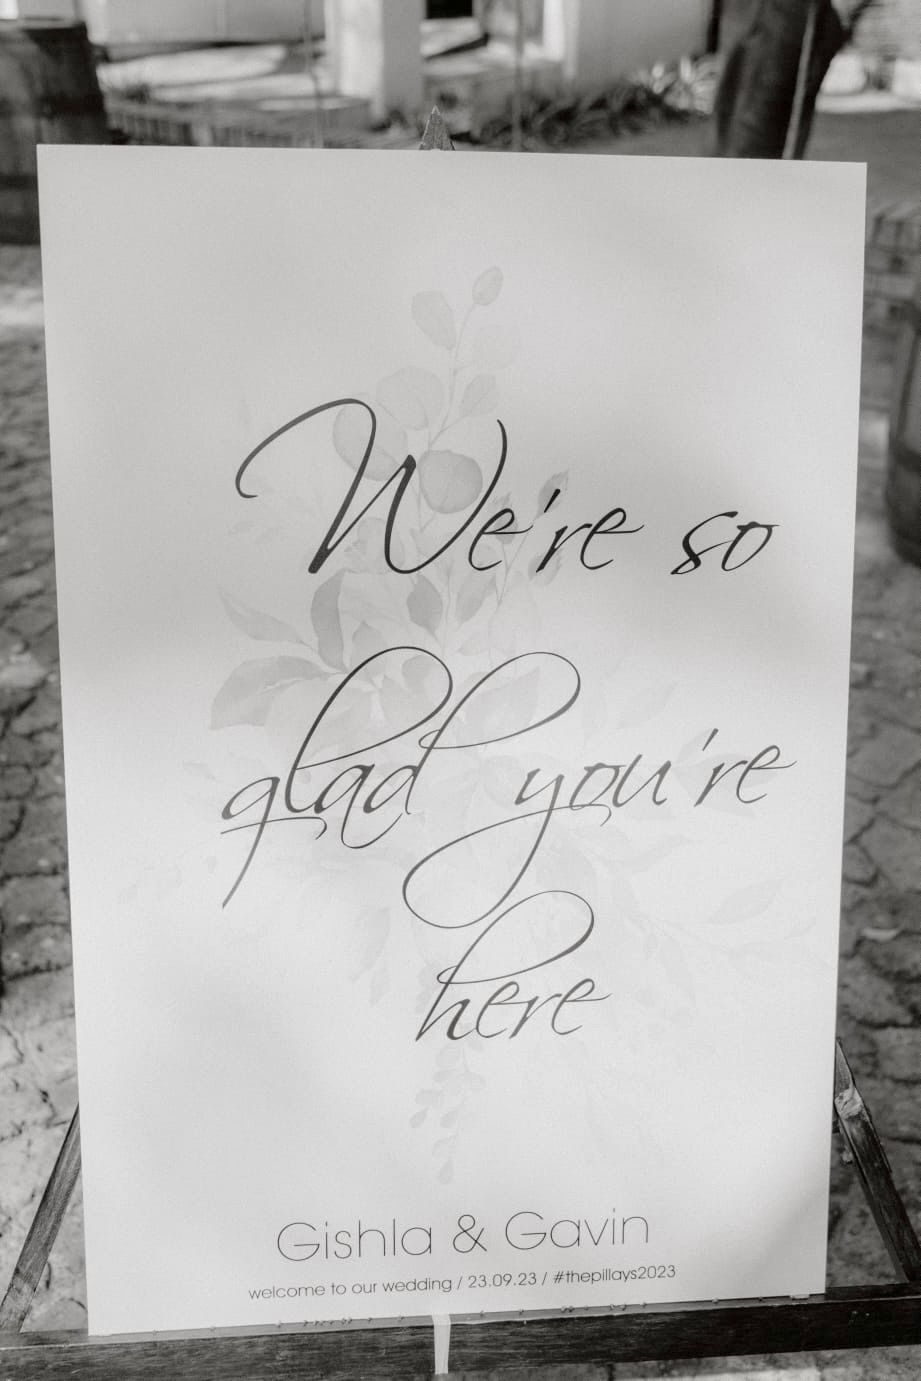 We're so
glad you're
here
Gishla & Gavin
welcome to our wedding / 23.09.23 / #thepillays2023